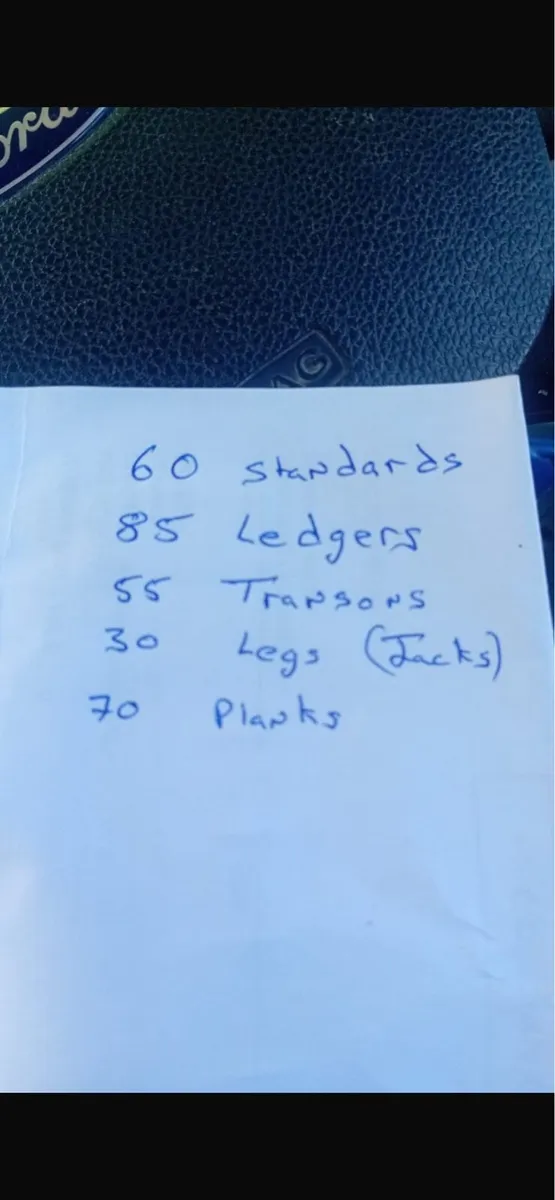 60 Standards
85 Ledgers
55 Transons
30 Legs (Jacks)
70 Planks